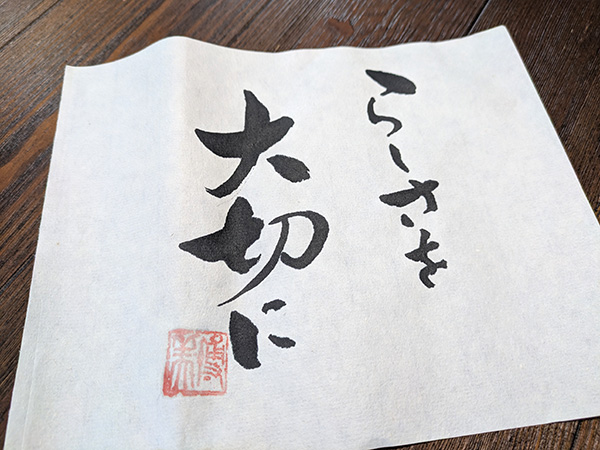 らしさを
大切に